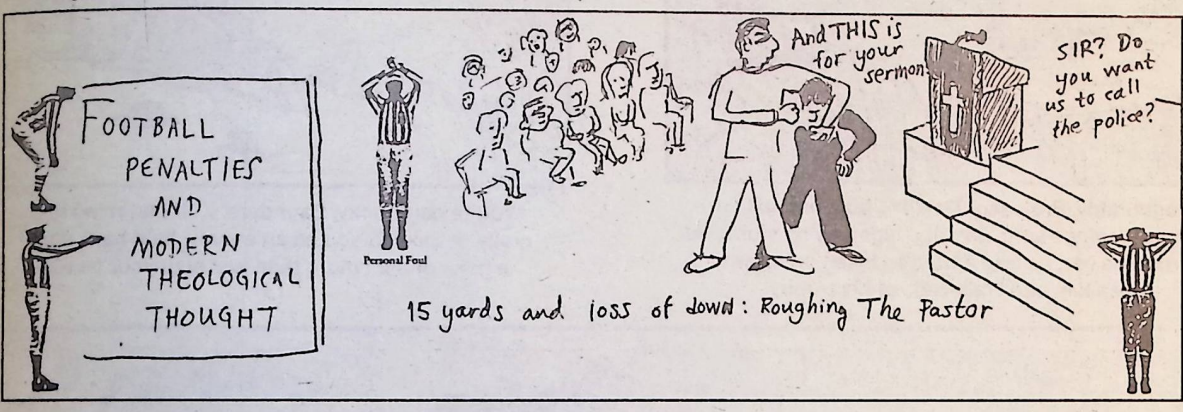 FOOTBALL
PENALTIES
AND
MODERN
THEOLOGICAL
THOUGHT
Personal Foul
And THIS is
for your
sermon!
SIR? Do
you want
us to call
the police?
15 yards and loss of down: Roughing The Pastor